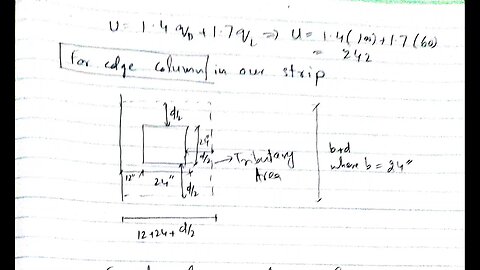 U = 1.4 q_D + 1.7 q_L ⇒ U = 1.4(100)+1.7(60)
= 242
For edge column in our strip
d/2
24"
d/2
Tributary
Area
b+d
where b = 24"
12"
24"
d/2
12+24+d/2